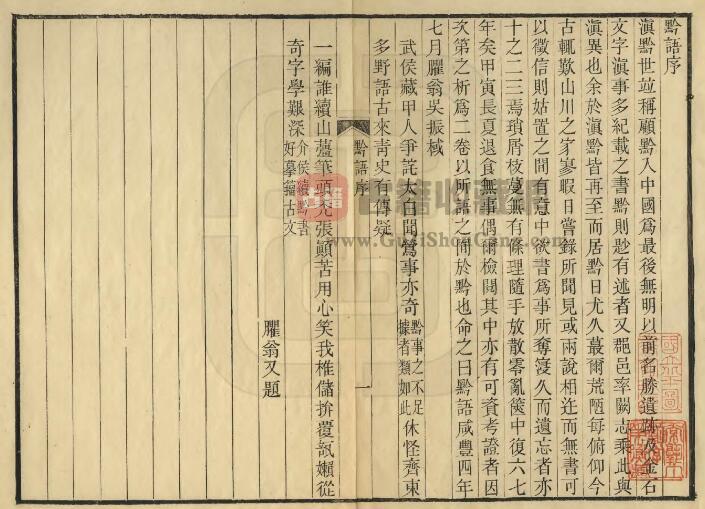 黔語序
滇黔世竝稱顧黔入中國爲最後無明以前名勝遺跡及金石
文字滇事多紀載之書黔則尟有述者又郡邑率闕志乘此與
滇異也余於滇黔皆再至而居黔日尤久蕞爾荒陋每俯仰今
古輒歎山川之寥寥暇日嘗錄所聞見或兩說相迕而無書可
以徵信則姑置之間有意中欲書爲事所奪寖久而遺忘者亦
十之二三焉瑣屑枝蔓無有條理隨手放散零亂篋中復六七
年矣甲寅長夏退食無事偶爾檢閱其中亦有可資考證者因
次第之析爲二卷以所語之閒於黔也命之曰黔語咸豐四年
七月臞翁吳振棫
武侯藏甲人爭詫太白聞鶯事亦奇黔事之不足據者類如此休怪齊東
多野語古來靑史有傳疑
黔語序
一
一編誰續山薑筆頭禿張顚苦用心笑我椎儲拚覆瓿嬾從
奇字學艱深介侯續黔書好摹籀古文
臞翁又題
www.GuJiShouCang.com